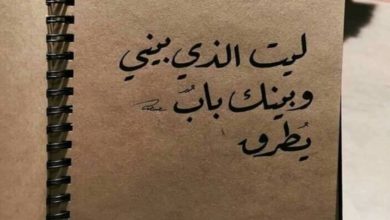 ليت الذي بيني
وبينك بابٌ
يُطرق